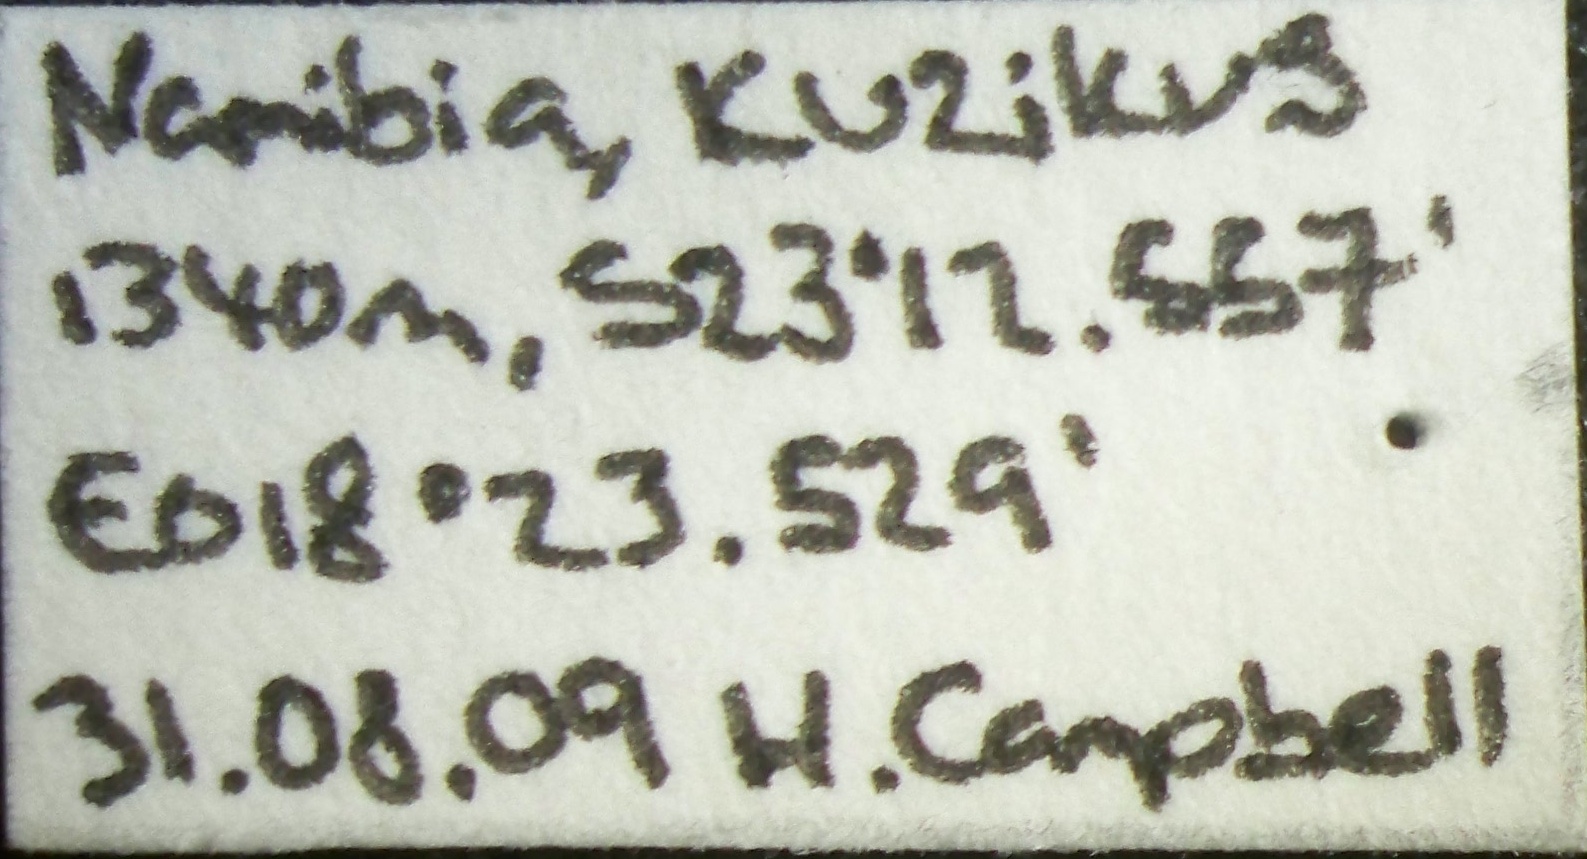 Namibia, Kuzikus
1340m, S23°12.557'
E018°23.529'
31.08.09 H.Campbell